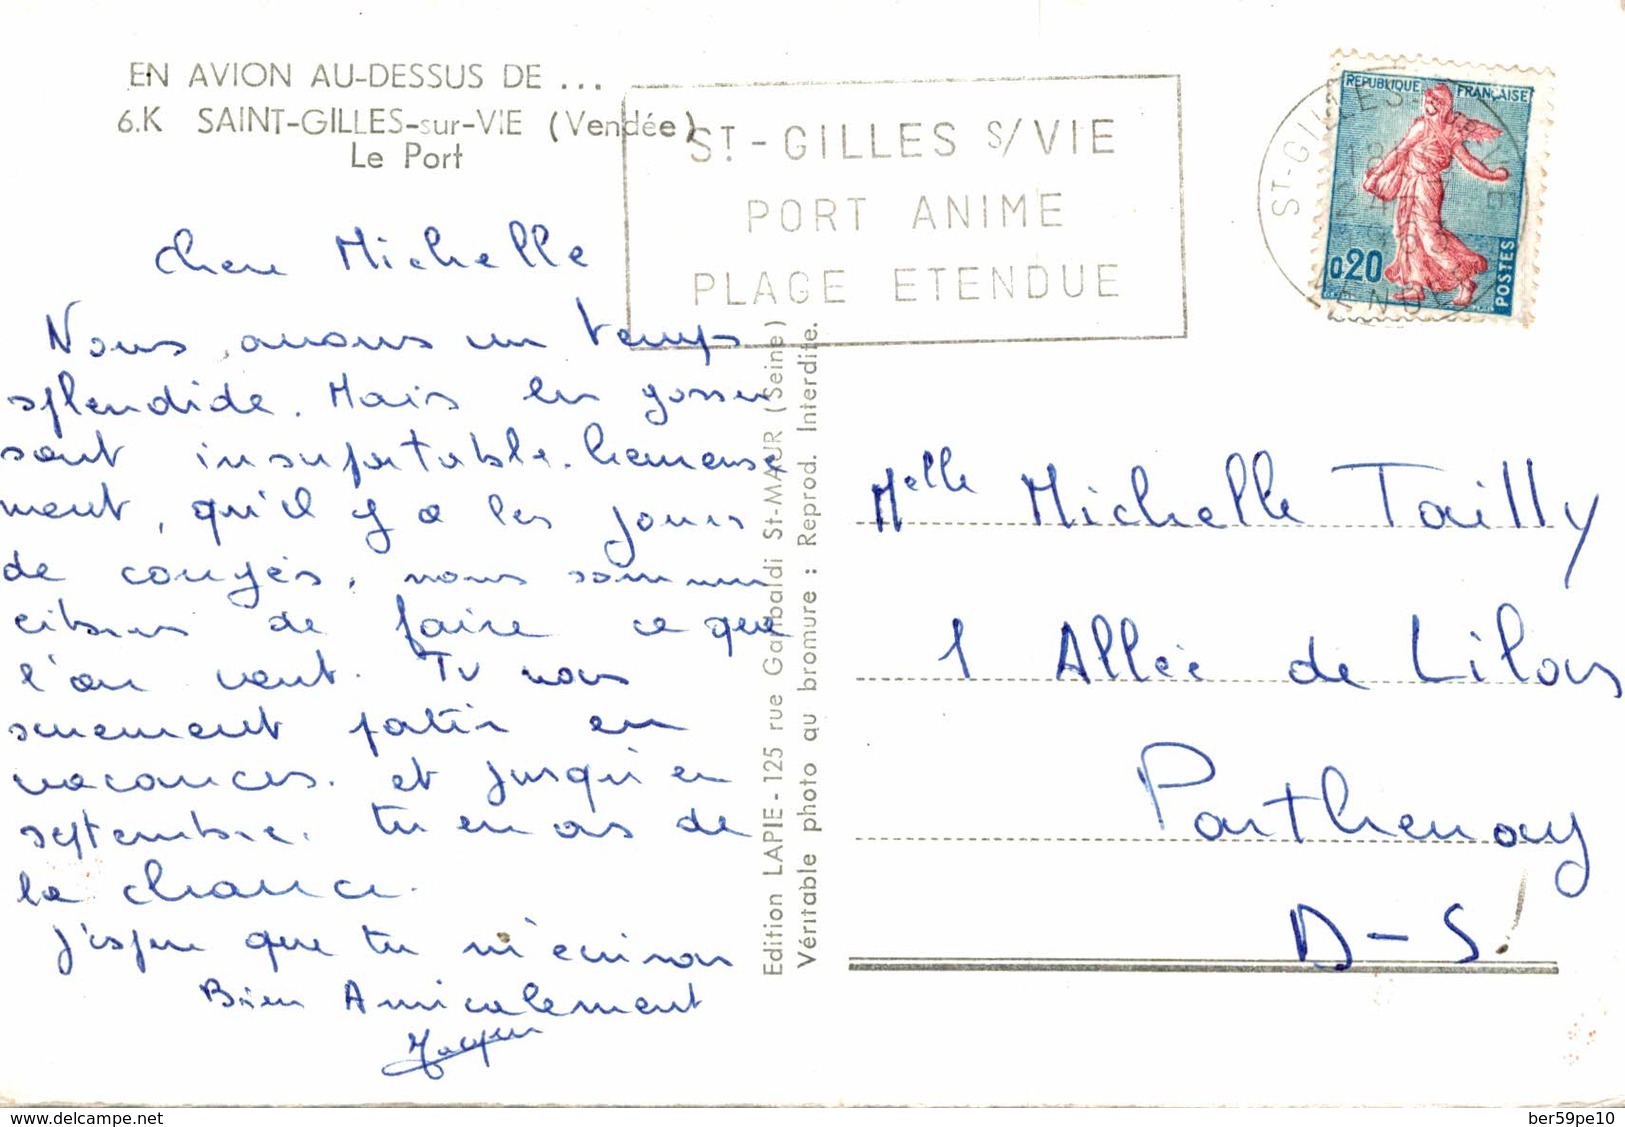 EN AVION AU-DESSUS DE ...
6.K SAINT-GILLES-sur-VIE (Vendée)
Le Port
ST-GILLES S/VIE
PORT ANIME
PLAGE ETENDUE
REPUBLIQUE FRANÇAISE
0,20
POSTES
ST-GILLES-SUR-VIE
18
24-7
1963
VENDEE
Chere Michelle
Nous avons un temps
splendide. Mais les gosses
sont insuportable. heureuse
ment, qu'il y a les jours
de congés, nous sommes
libres de faire ce que
l'on veut. Tu nous
surement partir en
vacances. et jusqu'en
septembre. tu en as de
la chance.
J'espere que tu m'ecriras
Bien Amicalement
Edition LAPIE - 125 rue Garibaldi St-MAUR (Seine)
Véritable photo au bromure : Reprod. Interdite.
Melle Michelle Tailly
1 Allée de Lilas
Parthenay
D-S.
delcampe.net
ber59pe10